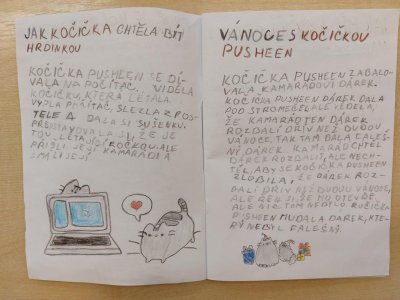 JAK KOČIČKA CHTĚLA BÝT
HRDINKOU
KOČIČKA PUSHEEN SE DÍ-
VALA NA POČÍTAČ. VIDĚLA
KOČIČKU, KTERÁ LÉTALA.
VYPLA POČÍTAČ, SLEZLA Z POS-
TELE A DALA SI SUŠENKU.
PŘEDSTAVOVALA SI, ŽE JE
TOU LÉTAJÍCÍ KOČKOU. ALE
PŘIŠLI JEJÍ KAMARÁDI A
SMÁLI SE JÍ
VÁNOCE S KOČIČKOU
PUSHEEN
KOČIČKA PUSHEEN ZABALO-
VALA KAMARÁDOVI DÁREK.
KOČIČKA PUSHEEN DÁREK DALA
POD STROMEČEK, ALE VĚDĚLA,
ŽE KAMARÁD TEN DÁREK
ROZDALÍ DŘÍV NEŽ BUDOU
VÁNOCE, TAK TAM DALA FALEŠ-
NÝ DÁREK. KAMARÁD CHTĚL
DÁREK ROZDALIT, ALE NECH-
TĚL, ABY SE KOČIČKA PUSHEEN
ZLOBILA, ŽE DÁREK ROZ-
DALÍ DŘÍV NEŽ BUDOU VÁNOCE,
ALE
ALE NIC TAM NEBYLO. KOČIČKA
PUSHEEN MU DALA DÁREK, KTE-
RÝ NEBYL FALEŠNÝ.